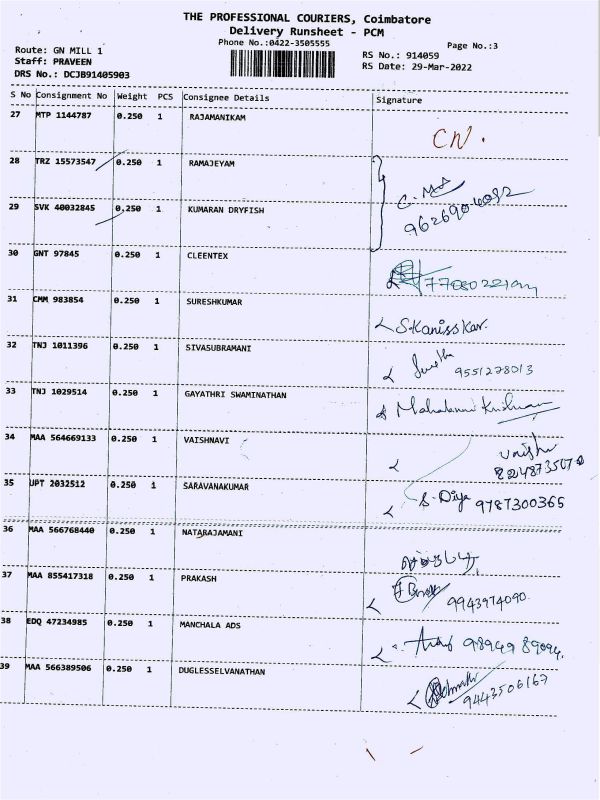 THE PROFESSIONAL COURIERS, Coimbatore
Delivery Runsheet - PCM
Phone No.:0422-3505555
Page No.:3
Route: GN MILL 1
Staff: PRAVEEN
DRS No.: DCJB91405903
RS No.: 914059
RS Date: 29-Mar-2022
S No Consignment No Weight PCS Consignee Details Signature
27 MTP 1144787 0.250 1 RAJAMANIKAM
CN.
28 TRZ 15573547 0.250 1 RAMAJEYAM
29 SVK 40032845 0.250 1 KUMARAN DRYFISH
30 GNT 97845 0.250 1 CLEENTEX
31 CMM 983854 0.250 1 SURESHKUMAR
S.Kanisskar.
32 TNJ 1011396 0.250 1 SIVASUBRAMANI
9551278013
33 TNJ 1029514 0.250 1 GAYATHRI SWAMINATHAN
34 MAA 564669133 0.250 1 VAISHNAVI
35 UPT 2032512 0.250 1 SARAVANAKUMAR
S. Diya 9787300365
36 MAA 566768440 0.250 1 NATARAJAMANI
37 MAA 855417318 0.250 1 PRAKASH
9943974090
38 EDQ 47234985 0.250 1 MANCHALA ADS
98949 89094.
39 MAA 566389506 0.250 1 DUGLESSELVANATHAN
9443506167